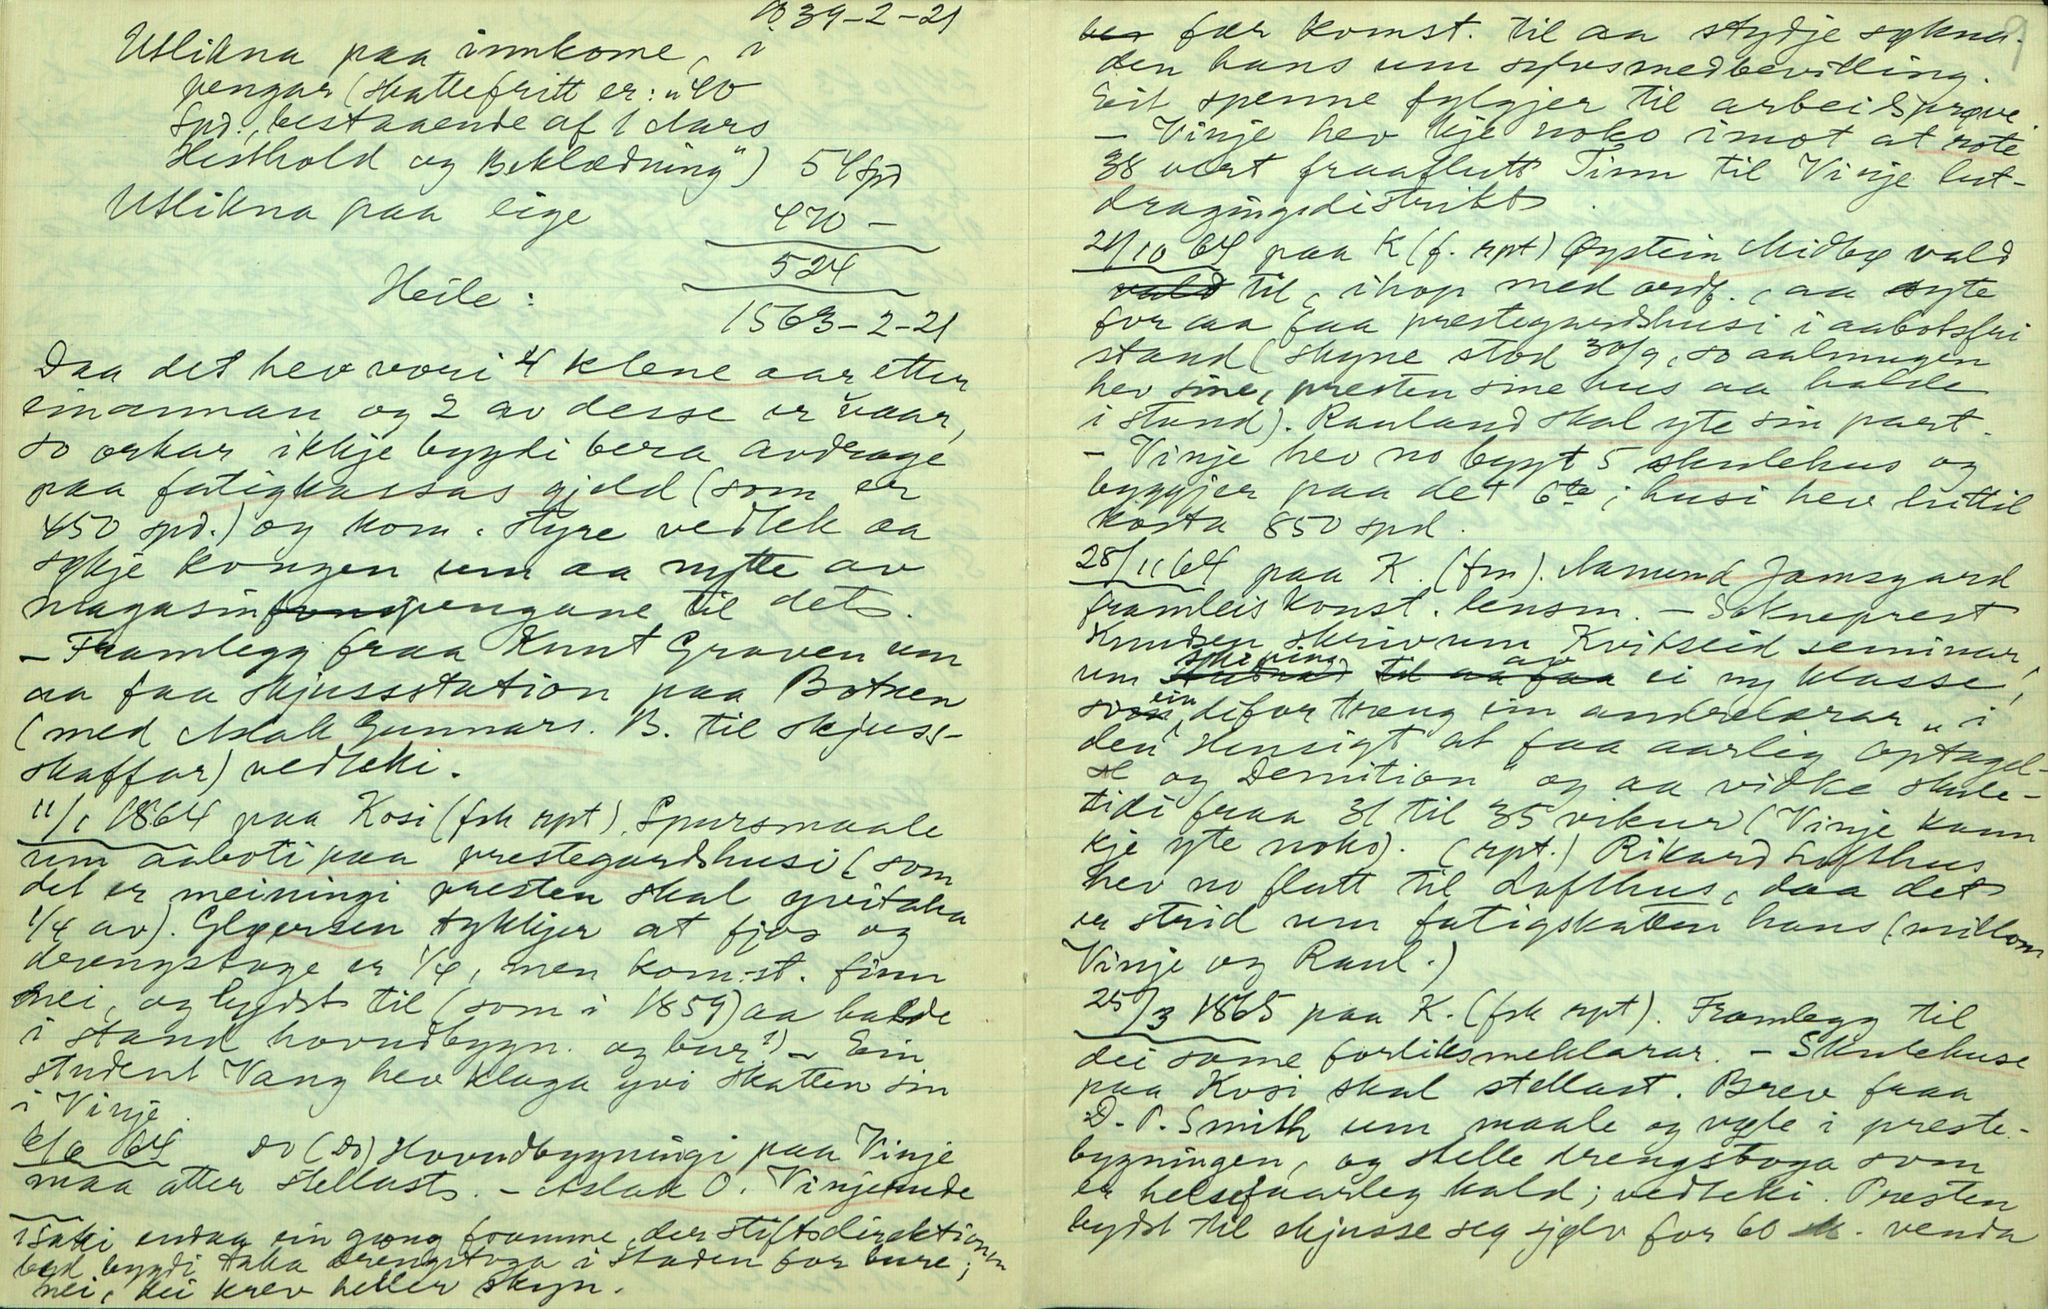 1039-2-21
Utlikna paa innkome, i
pengar (skattefritt er: "40
Spd., bestaaende af 1 Aars
Husthold og Beklædning") 54 spd
Utlikna paa eige 470 -
524
Heile: 1563-2-21
Daa det hev vori 4 klene aar etter
einannan og 2 av desse er uaar,
so orkar ikkje bygdi bera avdrage
paa fatigkassas gjeld (som er
450 spd.) og kom. styre vedtek aa
sykje kongen um aa nytte av
magasinpengane til det.
- Framlegg fraa Knut Groven um
aa faa skjusstation paa Botnen
(med Aslak Gunnars. B. til skjuss-
skaffar) vedteki.
11/1 1864 paa Kosi (fsk rpt). Spursmaale
um aaboti paa prestegardshusi (som
det er meiningi presten skal yvitaka
1/4 av). Ejlertsen tykkjer at fjos og
drengstoge er 1/4, men kom.st. finn
nei, og bydst til (som i 1859) aa halde
i stand hovudbygn. og bur 1) - Ein
student Vang hev klaga yvi skatten sin
i Vinje.
6/6 64 do (do) Hovudbygningi paa Vinje
maa atter stellast. - Aslak O. Vinje
1) Saki endaa ein gong framme, der stiftsdirektionen
bed bygdi taka drengstoga i staden for bure;
nei, dei krev heller skyn.
9
fær komst. til aa stydje sykna-
den hans um sylvsmedbevilling.
Eit spenne fylgjer til arbeidsprøve.
- Vinje hev kje noko imot at rote
38 vert fraaflutt Tinn til Vinje lut-
dragingsdistrikt.
21/10 64 paa K (f. rpt) Øystein Midbø vald
til, ihop med ordf., aa syte
for aa faa prestegardshusi i aabotsfri
stand (skyne stod 30/9, so aalmugen
hev sine, presten sine hus aa halde
i stand). Rauland skal yte sin part.
- Vinje hev no bygt 5 skulehus og
byggjer paa det 6te; husi hev hittil
kosta 850 spd.
28/11 64 paa K. (fm). Aamund Jamsgard
framleis konst. lensm. - Sokneprest
Knudsen skriv um Kvitseid seminar,
um skiping av ei ny klasse,
ein difor treng ein andrelærar "i
den Hensigt at faa aarlig Optagel-
se og Demition" og aa vidke skule-
tidi fraa 31 til 35 vikur (Vinje kann
kje yte noko). (rpt.) Rikard Lofthus
hev no flutt til Lofthus, daa det
er strid um fatigskatten hans (millom
Vinje og Raul.)
25/3 1865 paa K. (fsk rpt). Framlegg til
dei same forliksmeklarar. - Skulehuse
paa Kosi skal stellast. Brev fraa
D. P. Smith um maale og vøle i preste-
bygningen, og stelle drengstoga som
er helsefaarleg kald; vedteki. Presten
bydst til skjusse seg sjølv for 60 venda